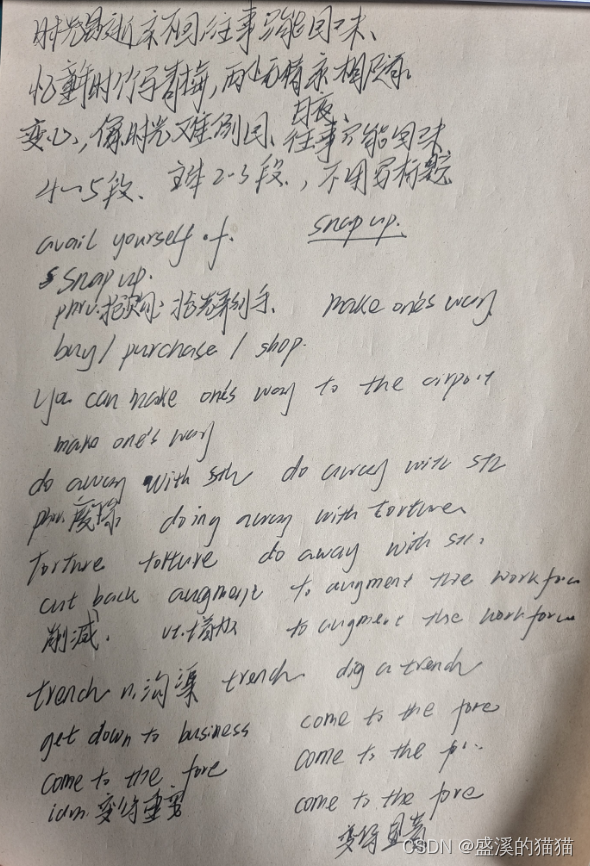 时光易逝亦不回,往事只能回味.
忆童年时竹马青梅,两小无猜亦相随.
变心,像时光又难倒回.往事只能回味
4-5段. 主体2-3段., 不用写标题
avail yourself of. snap up.
snap up.
phrv.抢购; 抢先弄到手. make one's way
buy / purchase / shop.
you can make one's way to the airport
make one's way
do away with sth do away with sth
phr.废除 doing away with torture
torture torture do away with sth.
cut back augment to augment the workforce
削减. vt.增加 to augment the workforce
trench n.沟渠 trench dig a trench
get down to business come to the fore
come to the fore come to the fo..
idm.变得重要 come to the fore
变得显著
CSDN @盛溪的猫猫